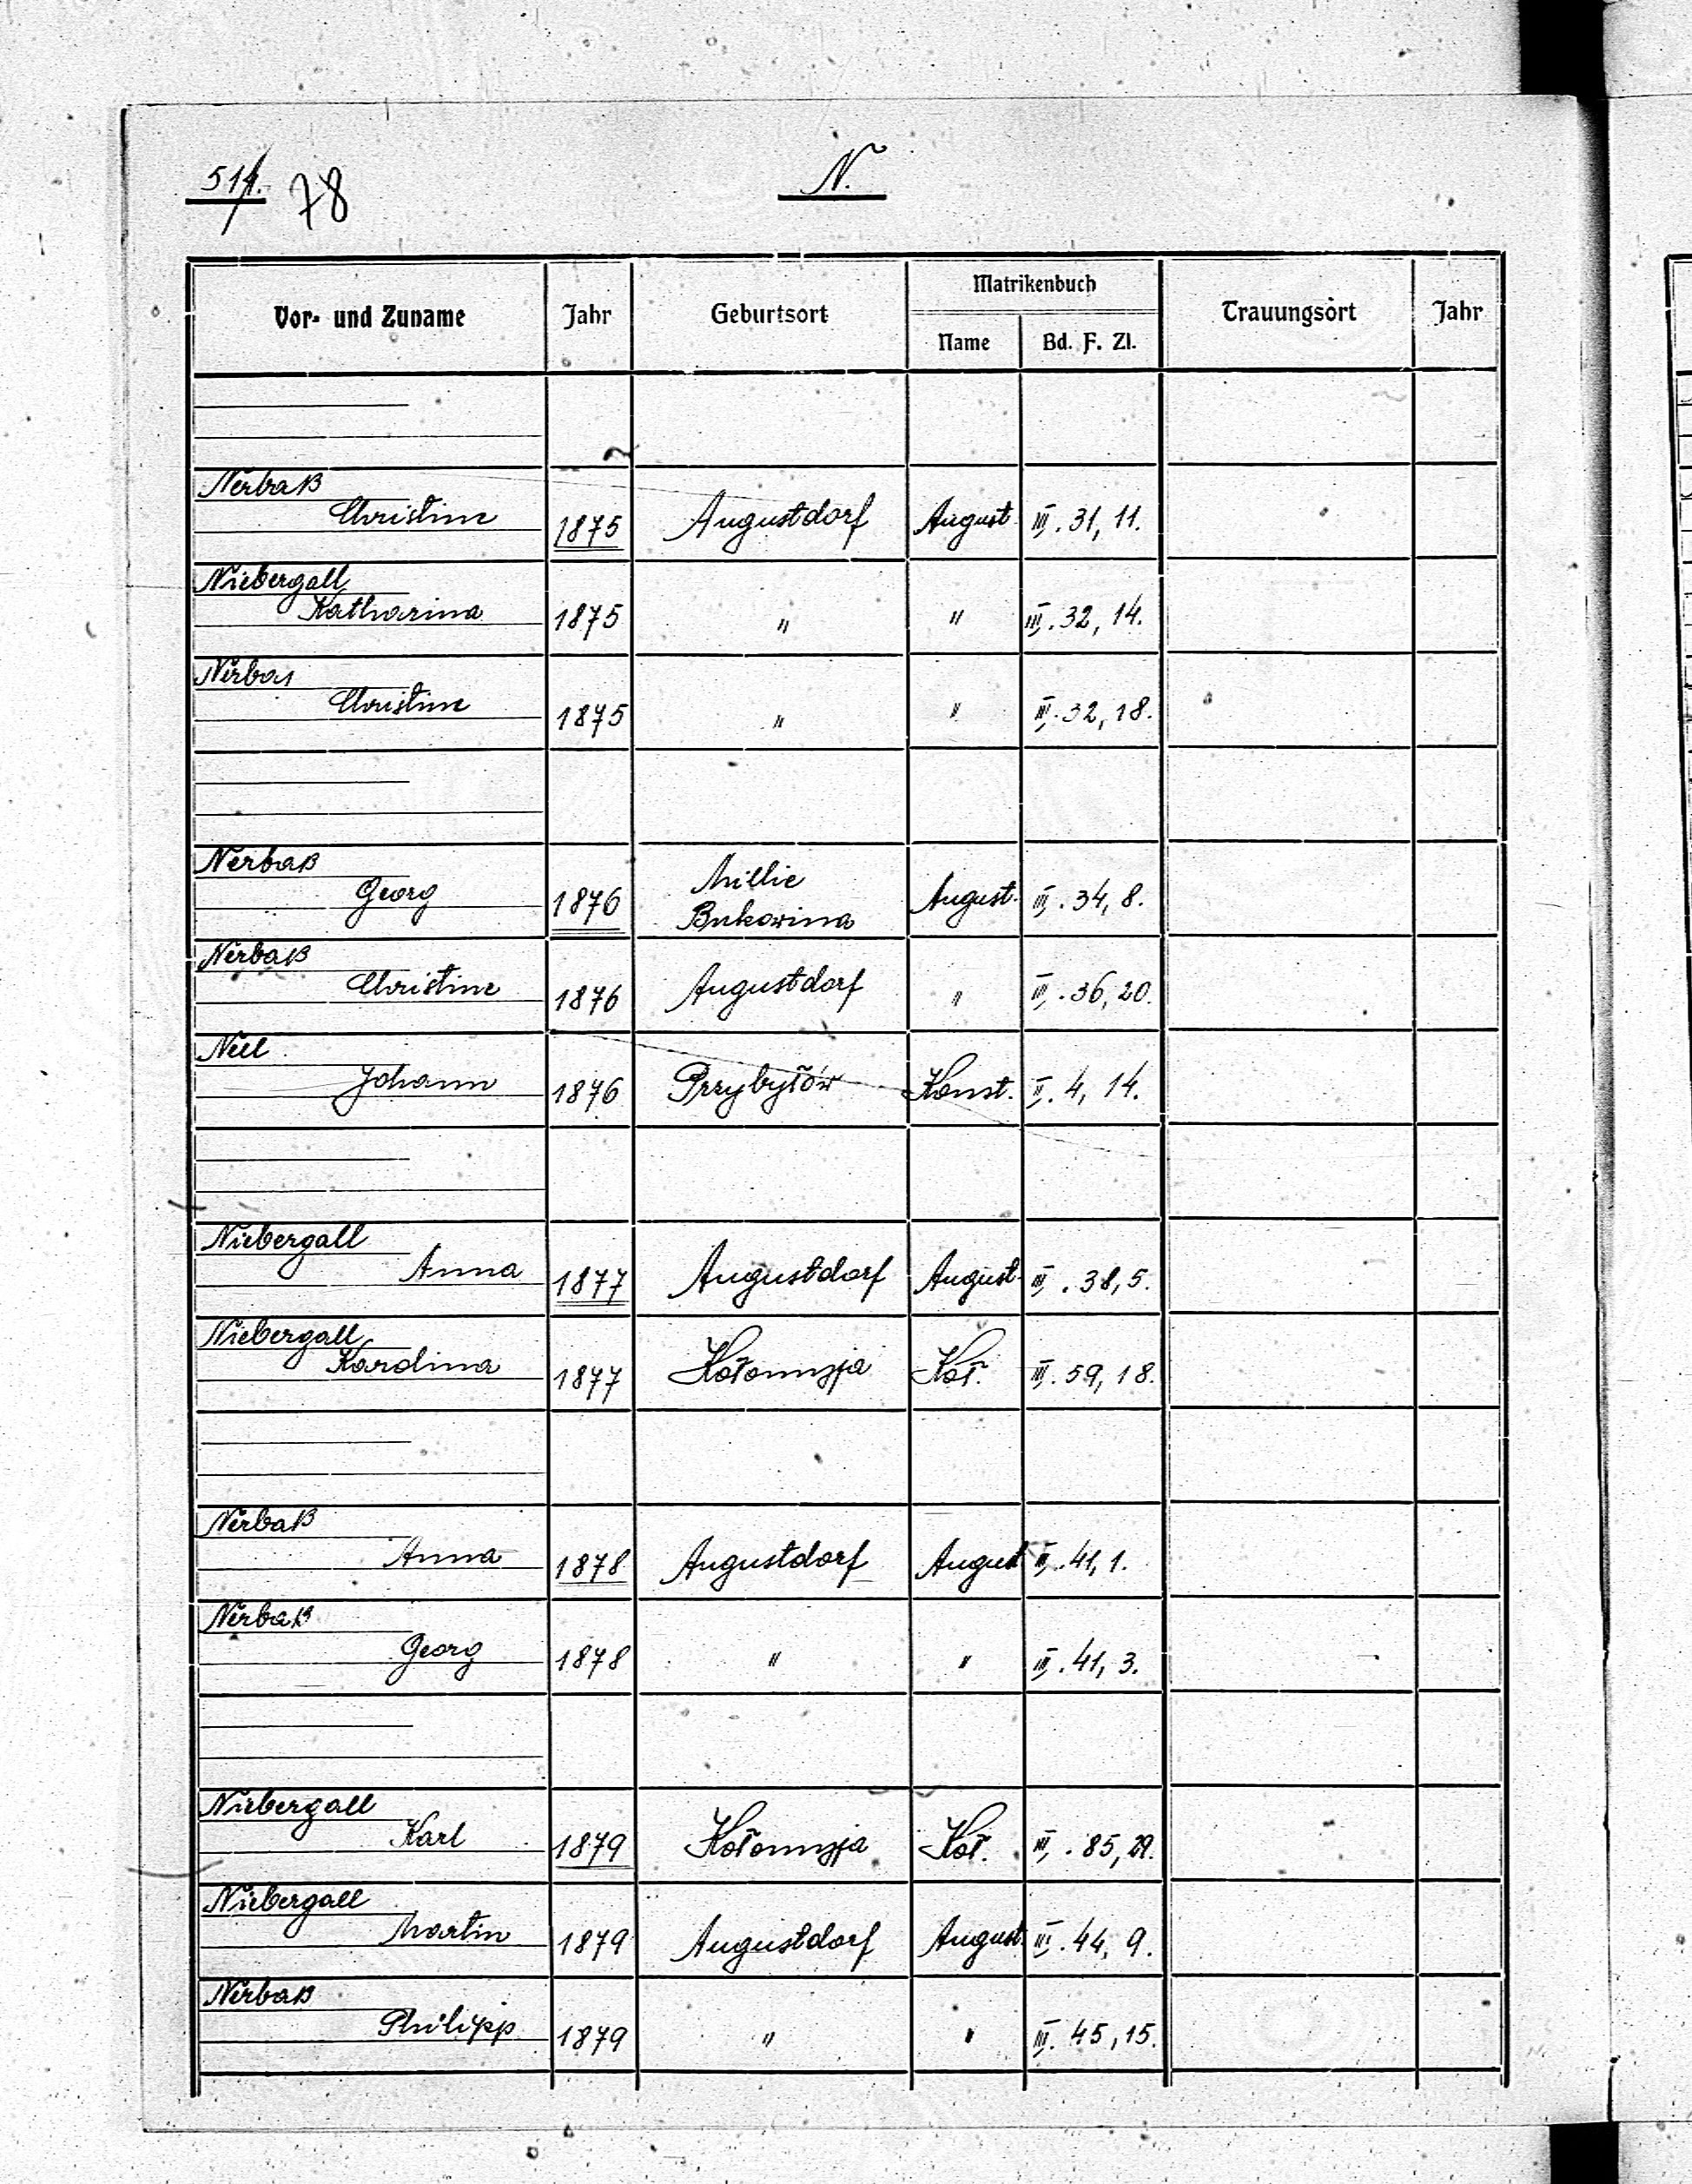 514. 78 N.
Vor- und Zuname Jahr Geburtsort Matrikenbuch Trauungsort Jahr
Name Bd. F. Zl.
Nerbaß
Christine 1875 Augustdorf August III. 31, 11.
Niebergall
Katharina 1875 " " III. 32, 14.
Nerbas
Christine 1875 " " III. 32, 18.
Nerbaß
Georg 1876 Millie
Bukowina August. III. 34, 8.
Nerbaß
Christine 1876 Augustdorf " III. 36, 20.
Johann 1876 Przybyłów Konst. II. 4, 14.
Niebergall
Anna 1877 Augustdorf August III. 38, 5.
Niebergall
Karolina 1877 Kołomyja Koł. III. 59, 18.
Nerbaß
Anna 1878 Augustdorf August III. 41, 1.
Nerbaß
Georg 1878 " " III. 41, 3.
Niebergall
Karl 1879 Kołomyja Koł. III. 85, 29.
Niebergall
Martin 1879 Augustdorf August. III. 44, 9.
Nerbaß
Philipp 1879 " " III. 45, 15.